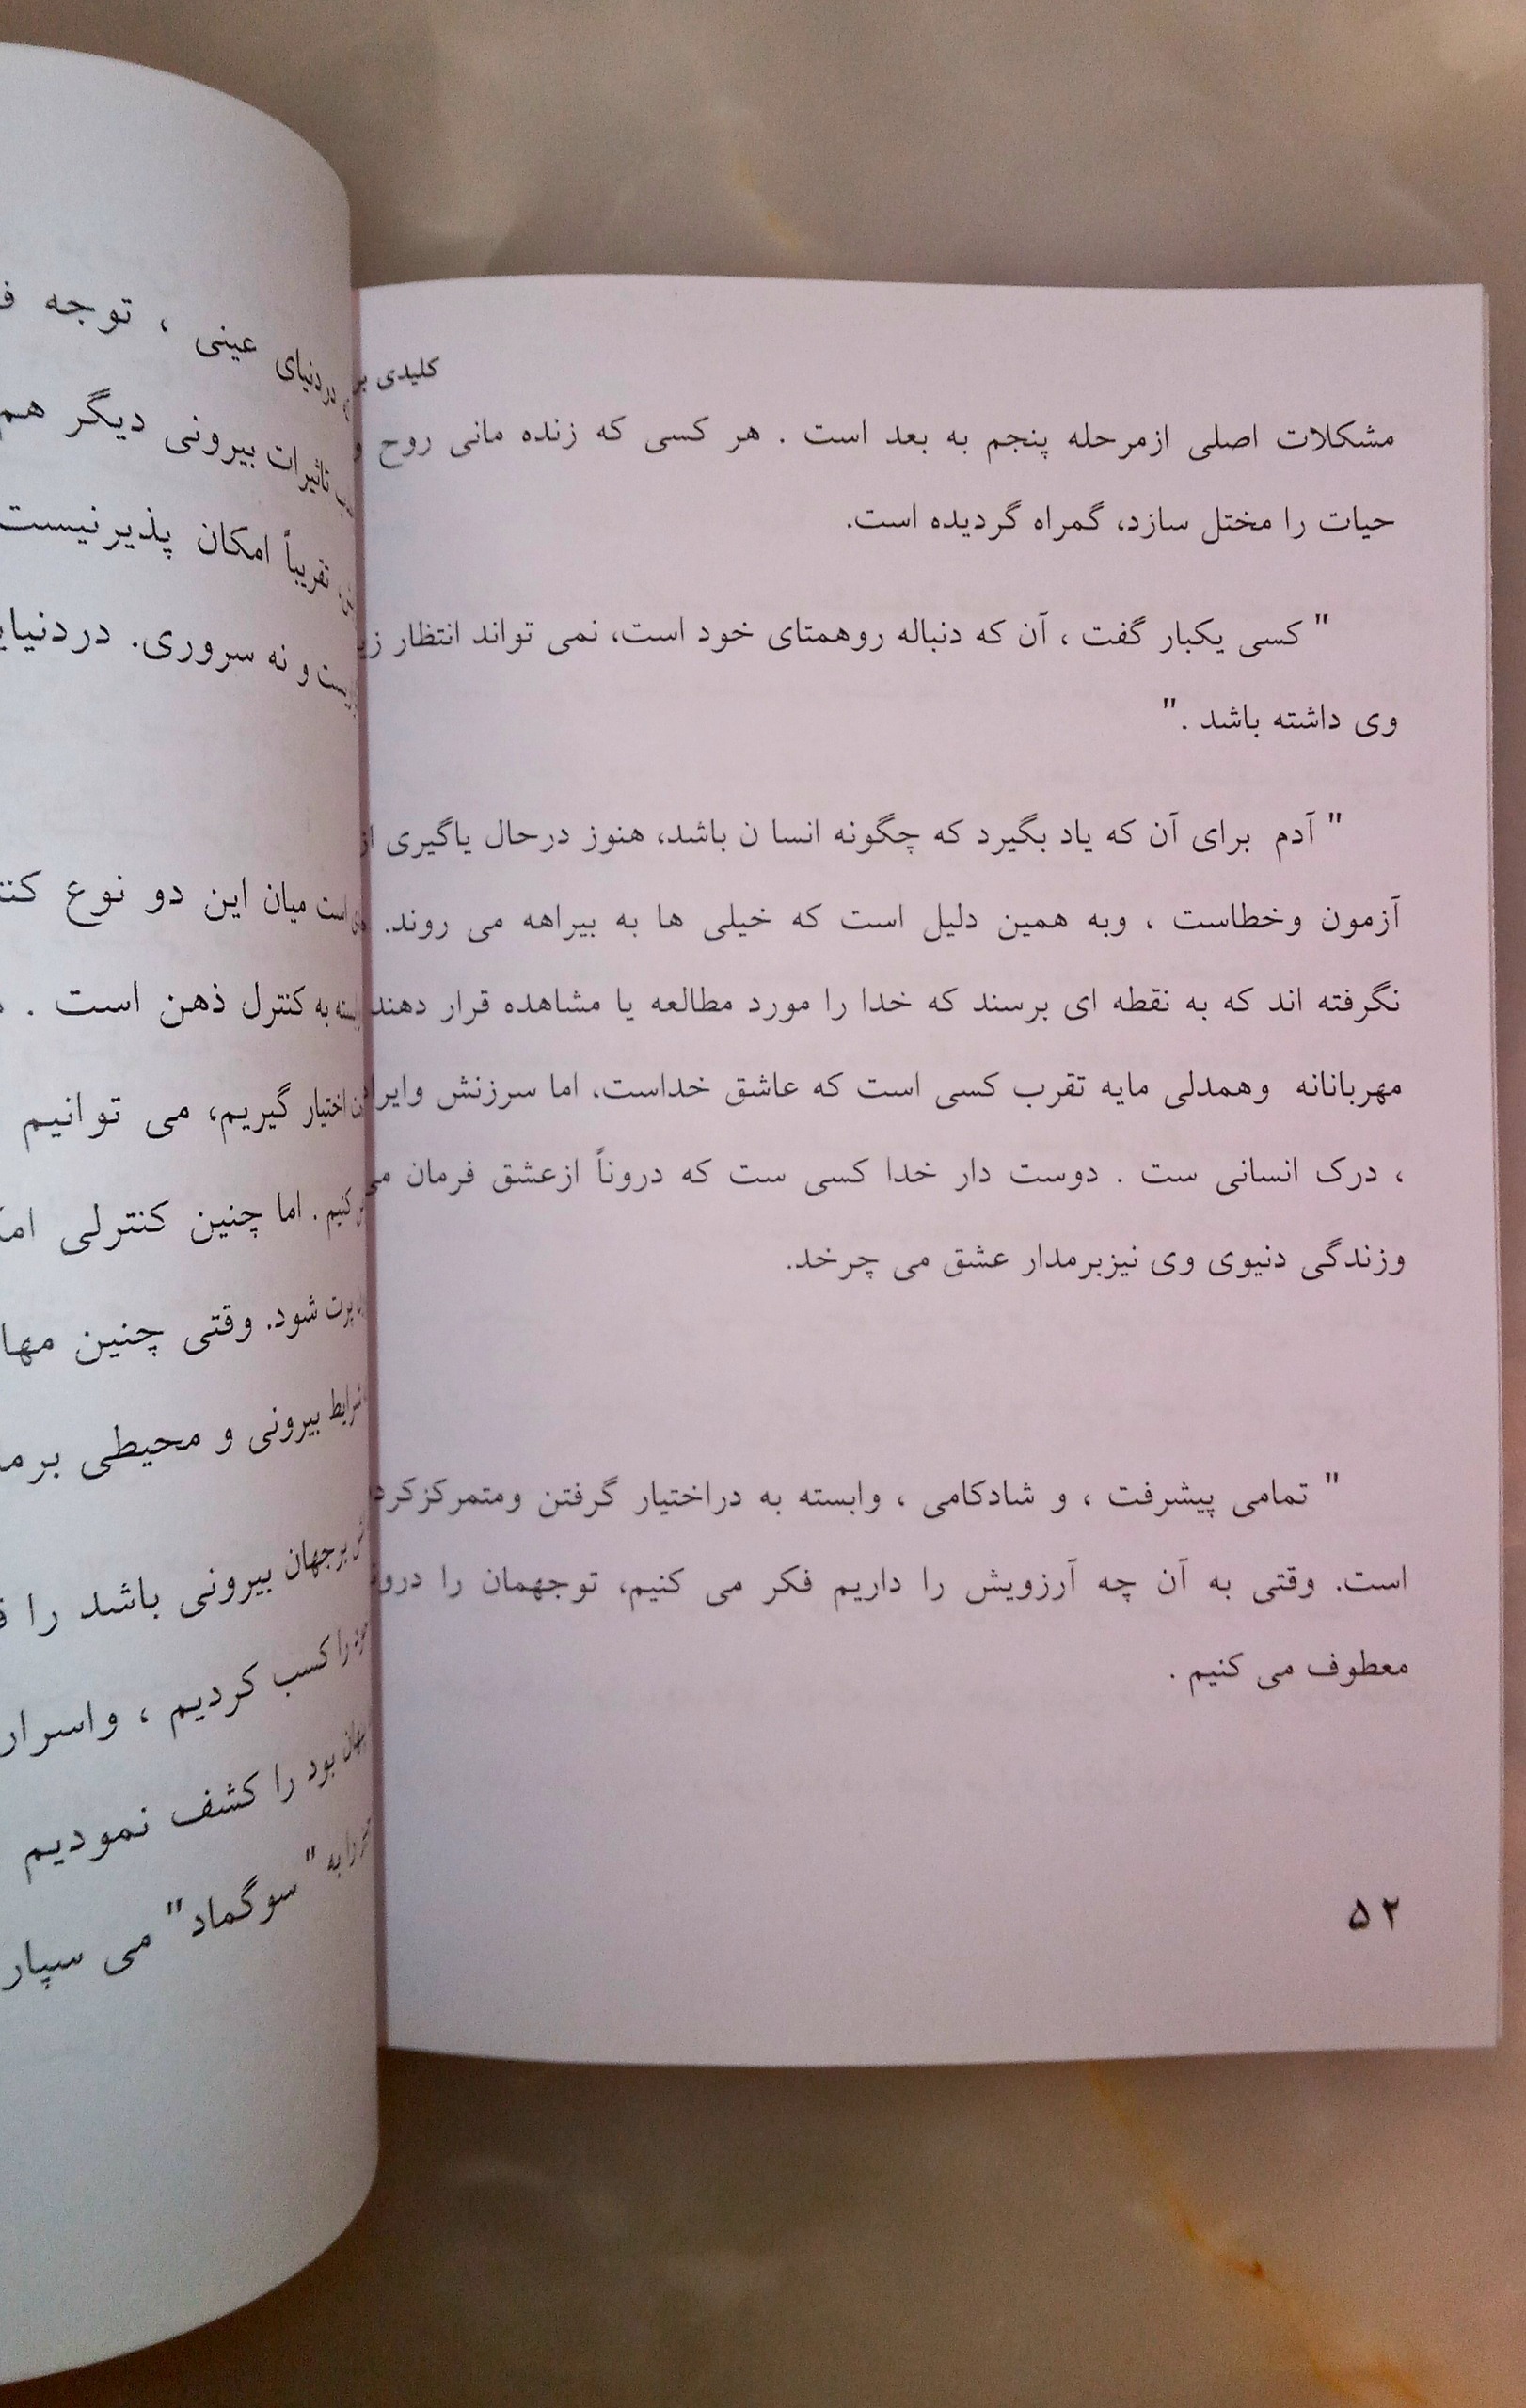 کلیدی
مشکلات اصلی ازمرحله پنجم به بعد است . هر کسی که زنده مانی روح و
حیات را مختل سازد، گمراه گردیده است.
" کسی یکبار گفت ، آن که دنباله روهمتای خود است، نمی تواند انتظار
وی داشته باشد ."
" آدم برای آن که یاد بگیرد که چگونه انسا ن باشد، هنوز درحال یاگیری از
آزمون وخطاست ، وبه همین دلیل است که خیلی ها به بیراهه می روند.
نگرفته اند که به نقطه ای برسند که خدا را مورد مطالعه یا مشاهده قرار دهند
مهربانانه وهمدلی مایه تقرب کسی است که عاشق خداست، اما سرزنش
، درک انسانی ست . دوست دار خدا کسی ست که دروناً ازعشق فرمان
وزندگی دنیوی وی نیزبرمدار عشق می چرخد.
" تمامی پیشرفت ، و شادکامی ، وابسته به دراختیار گرفتن
است. وقتی به آن چه آرزویش را داریم فکر می کنیم، توجهمان را
معطوف می کنیم .
۵۲
دردنیای عینی ، توجه
تاثیرات بیرونی دیگر هم
تقریباً امکان پذیرنیست
و نه سروری.
است میان این دو نوع
به کنترل ذهن است .
اختیار گیریم، می توانیم
کنیم . اما چنین کنترلی
پرت شود. وقتی چنین
شرایط بیرونی و محیطی
برجهان بیرونی باشد را
را کسب کردیم ، واسرار
بود را کشف نمودیم
را به " سوگماد" می